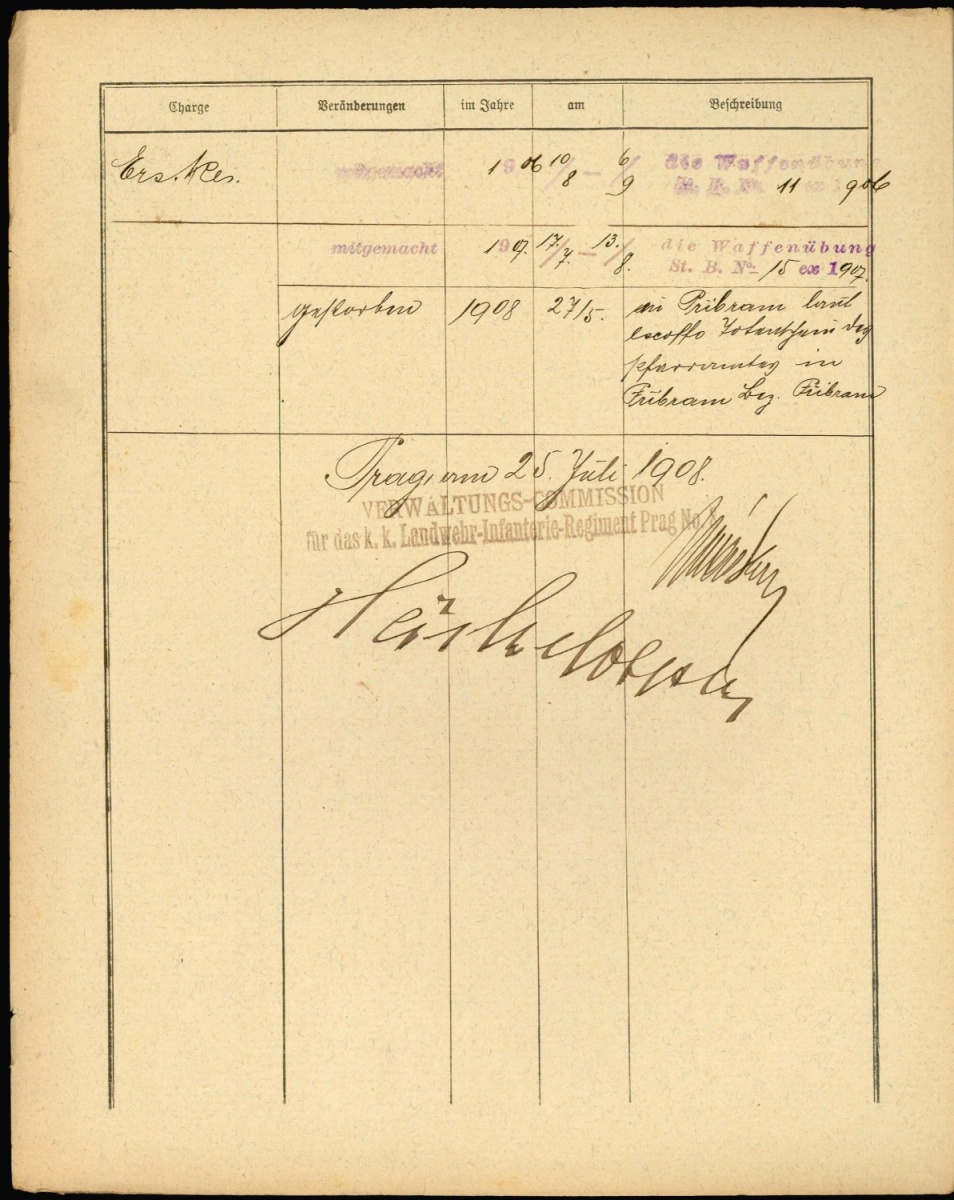 Charge Veränderungen im Jahre am Beschreibung
Ers. Res. mitgemacht 1906 10/8 – 6/9 die Waffenübung
St. B. No. 11 ex 1906
mitgemacht 1907. 17./7. – 13./8. die Waffenübung
St. B. No. 15 ex 1907.
gestorben 1908 27/5. in Pribram laut
Totenschein des
Pfarramtes in
Přibram Bez. Přibram
Prag, am 25. Juli 1908.
VERWALTUNGS-COMMISSION
für das k. k. Landwehr-Infanterie-Regiment Prag No. 8